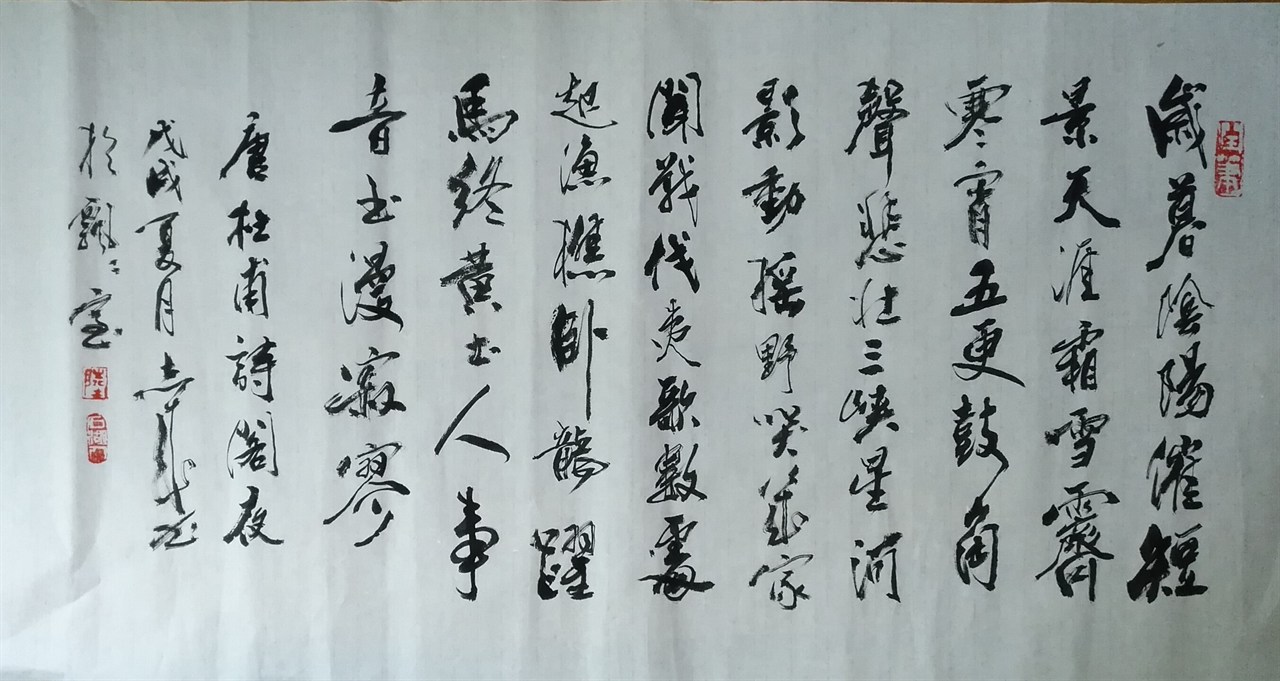 歲暮陰陽催短
景天涯霜雪霽
寒宵五更鼓角
聲悲壯三峽星河
影動搖野哭幾家
聞戰伐夷歌數處
起漁樵臥龍躍
馬終黃土人事
音書漫寂寥
唐杜甫詩閣夜
戊戌夏月志
於飄々室